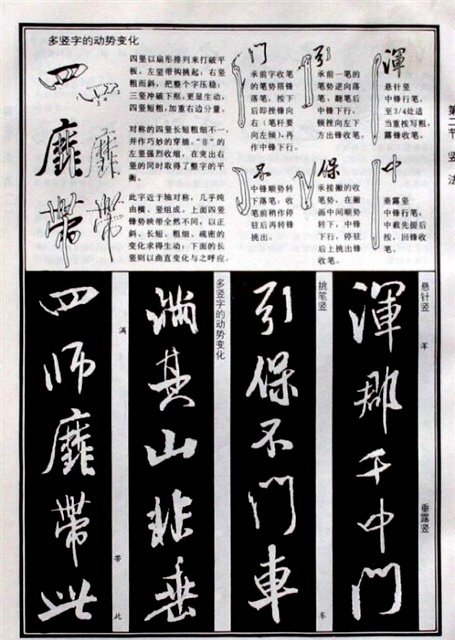 第二节 竖法
多竖字的动势变化
四
四竖以扇形排列来打破平
板。左竖带钩挑起；右竖
粗而斜，把整个字压稳；
三竖冲破下框，更显生动。
四竖短粗，加重右边分量。
靡
对称的四竖长短粗细不一，
并作巧妙的穿插。“非”的
左竖强烈收缩，在突出右
竖的同时取得了整字的平
衡。
带
此字近于轴对称，几乎纯
由横、竖组成。上面四竖
锋势映带全然不同，以正
斜、长短、粗细、疏密的
变化求得生动；下面的长
竖则以曲直变化与之呼应。
门
承前字收笔
的笔势搭锋
落笔。按下
后即推锋向
右（笔杆要
向左倾），再
作中锋下行。
引
承前一笔的
笔势逆向落
笔，翻笔后
中锋下行，
顿挫向左下
方出锋收笔。
渾
悬针竖
中锋行笔，
至3/4处适
当重按写粗，
露锋收笔。
不
中锋顺势转
下落笔；收
笔前稍作停
驻后再转锋
挑出。
保
承接撇的收
笔势，在撇
画中间顺势
转下，中锋
下行，停驻
后上挑出锋
收笔。
中
垂露竖
中锋行笔，
中截先提后
按，回锋收
笔。
悬针竖
浑
垂露竖
渾
郡
千
中
門
挑笔竖
车
引
保
不
門
車
多竖字的动势变化
满
甚
山
非
垂
满
带
此
四
师
靡
帶
此